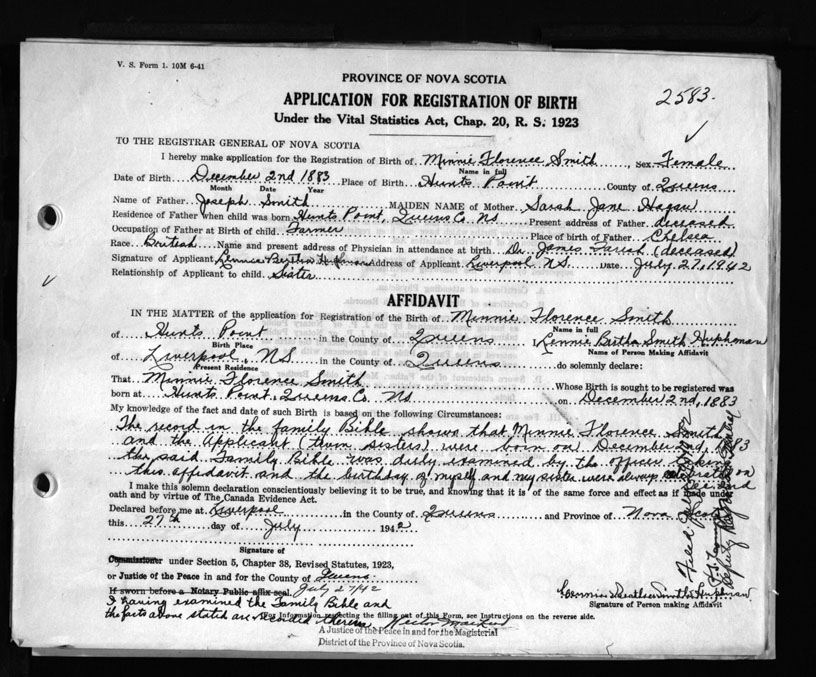 V. S. Form 1. 10M 6-41
PROVINCE OF NOVA SCOTIA
APPLICATION FOR REGISTRATION OF BIRTH
2583.
Under the Vital Statistics Act, Chap. 20, R. S. 1923
TO THE REGISTRAR GENERAL OF NOVA SCOTIA
I hereby make application for the Registration of Birth of Minnie Florence Smith, Sex Female
Name in full
Date of Birth December 2nd 1883 Place of Birth Hunts Point County of Queens
Month Date Year
Name of Father Joseph Smith MAIDEN NAME of Mother Sarah Jane
Residence of Father when child was born Hunts Point, Queens Co. NS Present address of Father deceased
Occupation of Father at Birth of child Farmer Place of birth of Father Chelsea
Race British Name and present address of Physician in attendance at birth Dr. James (deceased)
Signature of Applicant Address of Applicant Liverpool N.S. Date July 27, 1942
Relationship of Applicant to child Sister
AFFIDAVIT
IN THE MATTER of the application for Registration of the Birth of Minnie Florence Smith
Name in full
of Hunts Point in the County of Queens I, Bertha Smith
Birth Place Name of Person Making Affidavit
of Liverpool, NS in the County of Queens do solemnly declare:
Present Residence
That Minnie Florence Smith Whose Birth is sought to be registered was
born at Hunts Point, Queens Co. NS on December 2nd, 1883
My knowledge of the fact and date of such Birth is based on the following Circumstances:
The record in the family Bible shows that Minnie Florence Smith
and the Applicant (twin sisters) were born on December 2nd, 1883
the said Family Bible was duly examined by the officer
this affidavit and the birthday of myself and my sister were always on
I make this solemn declaration conscientiously believing it to be true, and knowing that it is of the same force and effect as if made under
oath and by virtue of The Canada Evidence Act.
Declared before me at Liverpool in the County of Queens and Province of Nova Scotia
this 27th day of July 1942
Signature of
Commissioner under Section 5, Chapter 38, Revised Statutes, 1923,
or Justice of the Peace in and for the County of Queens
If sworn before a Notary Public affix seal July 27/42
Signature of Person making Affidavit
I having examined the Family Bible and
For Information respecting the filling out of this Form, see Instructions on the reverse side.
the facts above stated are recorded therein
A Justice of the Peace in and for the Magisterial
District of the Province of Nova Scotia.